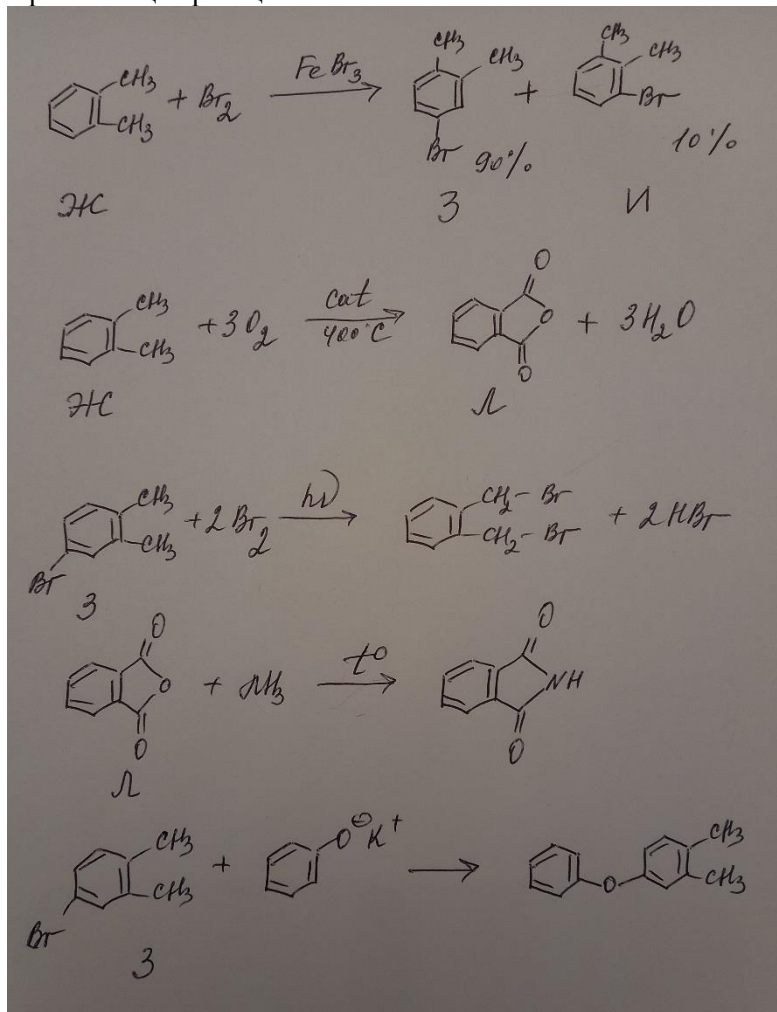 CH3 CH3 + Br2 FeBr3 CH3 CH3 Br 90% + CH3 CH3 Br 10%
Ж З И
CH3 CH3 + 3O2 cat 400°C O O O + 3H2O
Ж Л
Br CH3 CH3 + 2Br2 hν CH2-Br CH2-Br + 2HBr
З
O O O + NH3 t° O NH O
Л
Br CH3 CH3 + O⊖K+ O CH3 CH3
З